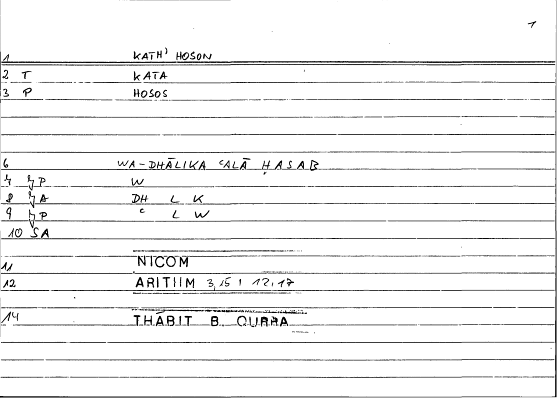 1
1 KATH' HOSON
2 T KATA
3 P HOSOS
6 WA-DHĀLIKA ʿALĀ ḤASAB
7 P W
8 A DH L K
9 P ʿ L W
10 SA
11 NICOM
12 ARITHM 3,15 ; 12,17
14 THĀBIT B. QURRA